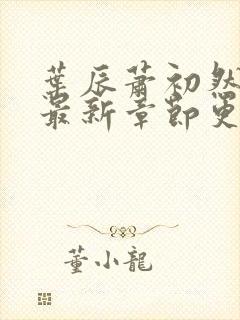 葉辰蕭初然
最新章節更
董小龍